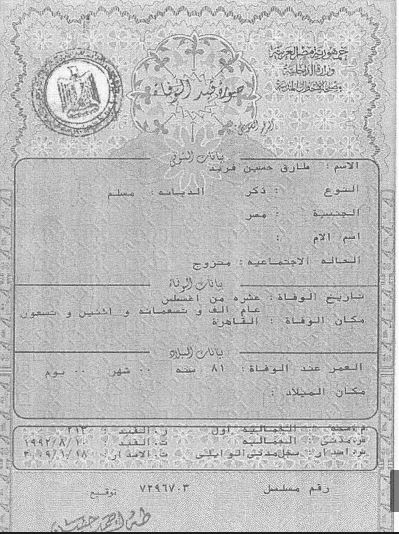 جمهورية مصر العربية
وزارة الداخلية
صورة قيد الوفاة
الرقم القومي
بيانات المتوفي
الاسم : طارق حسين فريد
النوع : ذكر الديانه : مسلم
الجنسية : مصر
اسم الام :
الحاله الاجتماعيه : متزوج
بيانات الوفاة
تاريخ الوفاة : عشره من اغسطس
عام الف و تسعمائه و اثنين و تسعون
مكان الوفاة : القاهرة
بيانات الميلاد
العمر عند الوفاة : ٨١ سنه ٠٠ شهر ٠٠ يوم
مكان الميلاد :
الجماليه اول ر.القيد : ٢١٣
س.مدنى : الجماليه ت.القيد : ١٩٩٢/٨/١٠
س.اصدار : سجل مدنى الوايلى ت.الاصدار : ٢٠١٩/١/١٨
رقم مسلسل ٧٢٩٦٧٠٣ توقيع